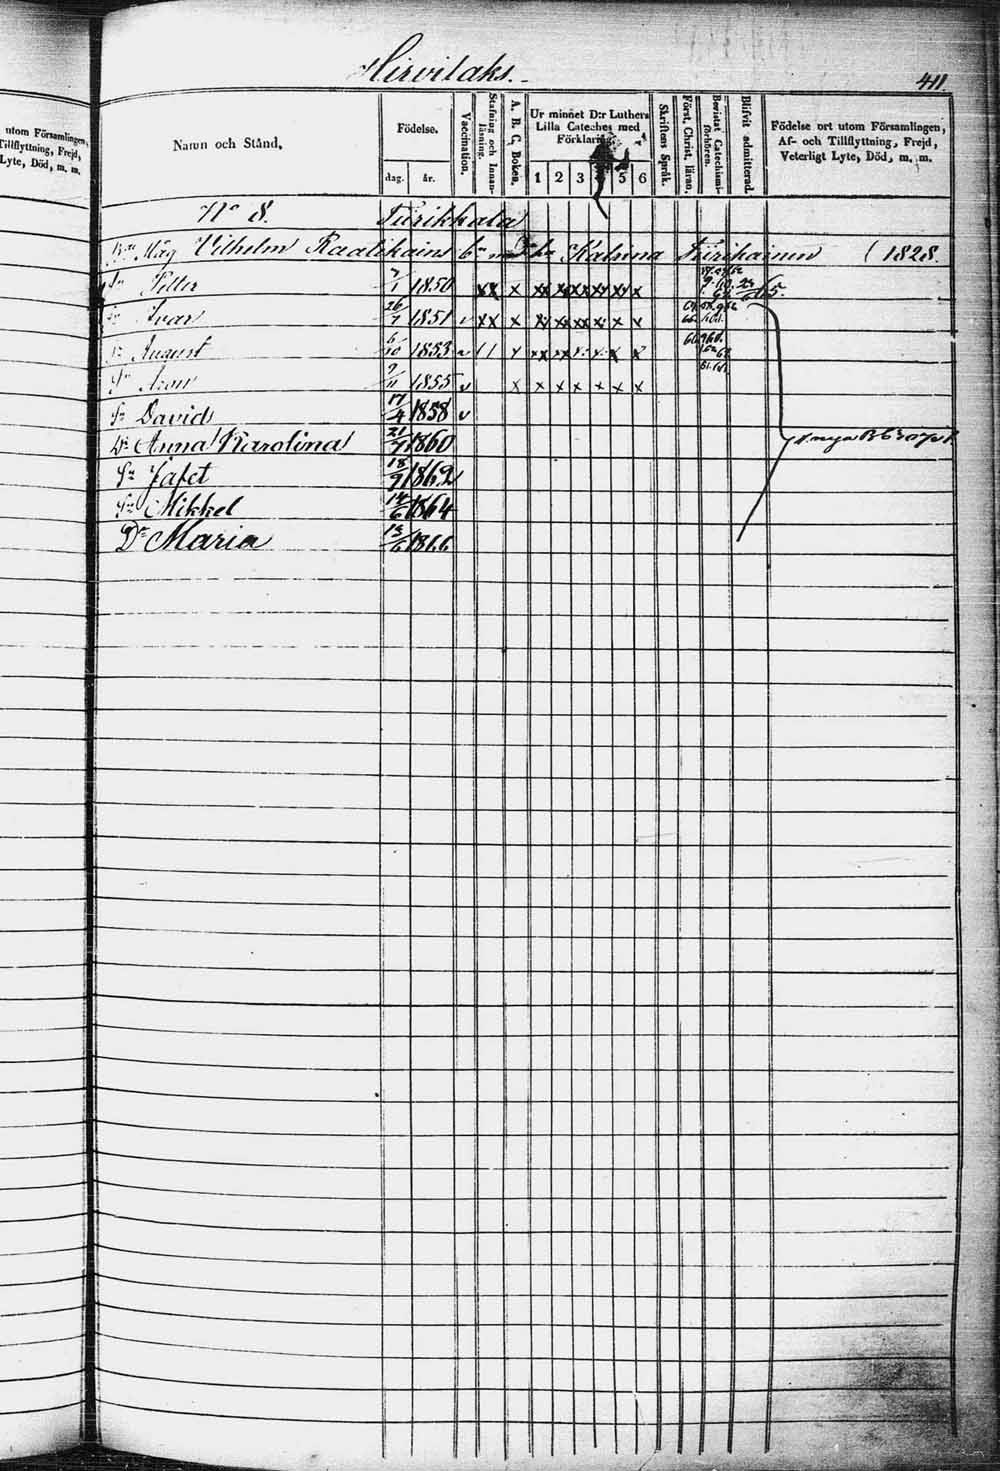 Hirvilaks.
411.
utom Församlingen,
Tillflyttning, Frejd,
Lyte, Död, m. m.
Namn och Stånd.
Födelse.
dag. år.
Vaccination.
Stafning och Innanläsning.
A. B. C. Boken.
Ur minnet D:r Luthers
Lilla Cateches med
Förklaring.
1 2 3 5 6
Skriftens Språk.
Först. Christ. läran.
Bevistat Catechismiförhören.
Blifvit admitterad.
Födelse ort utom Församlingen,
Af- och Tillflyttning, Frejd,
Veterligt Lyte, Död, m. m.
No 8. Tiirikkala
Måg Vilhelm Raatikains Katrina Tiirikainen (1828.
Sn Petter 1850 xx x xx xx xx xx xx x
Sn Ivar 26/7 1851 v xx x xx xx xx xx x x
Sn August 6/10 1853 v
Sn Aron 1855 v x x x x x x x
Sn David 17/4 1858 v
Dr Anna Karolina 21/7 1860
Sn Jafet 18/9 1862 v
Sn Mikkel 14/6 1864
Dr Maria 13/6 1866